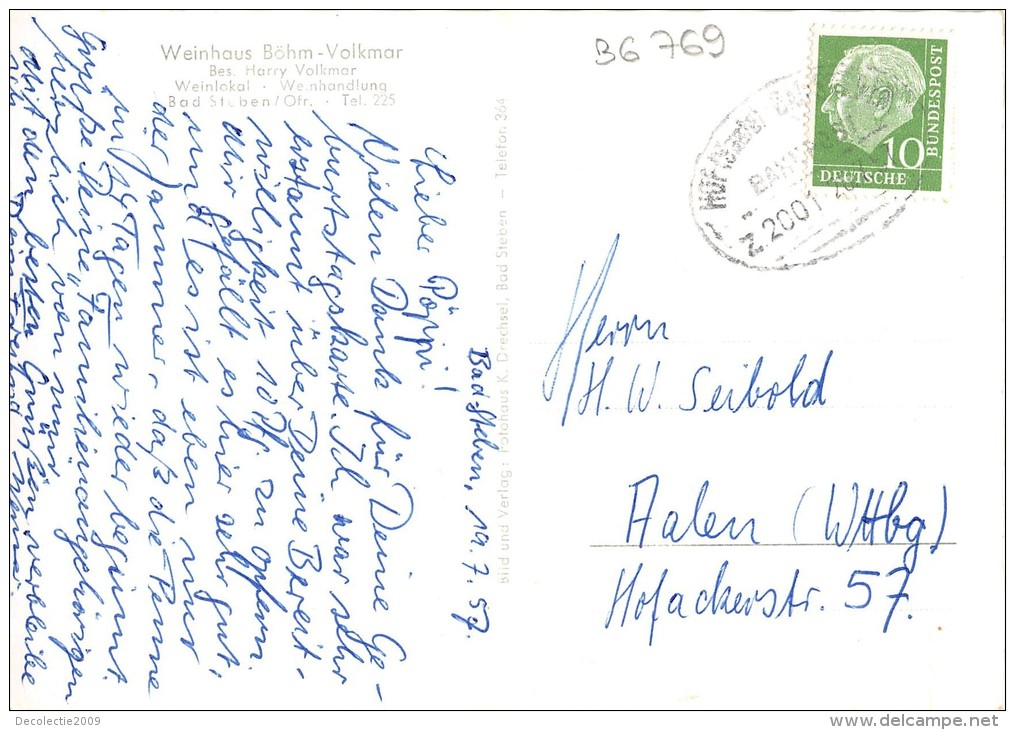 Weinhaus Böhm-Volkmar
Bes. Harry Volkmar
Weinlokal · Weinhandlung
Bad Steben/Ofr. · Tel. 225
B6 769
BUNDESPOST
10
DEUTSCHE
BAHNPOST
Z.2001
Bad Steben, 19.7.57.
Lieber Pöppi!
Vielen Dank für Deine Ge-
burtstagskarte. Ich war sehr
erstaunt über Deine Bereit-
willigkeit 10 Pf. zu opfern.
Mir gefällt es hier sehr gut;
und es ist eben nur
der Jammer, daß die Penne
in 14 Tagen wieder beginnt.
Grüße Deine "Familienangehörigen"
herzlich von mir
Mit den besten Grüßen verbleibe
ich Dein Freund
Bild und Verlag: Fotohaus K. Drechsel, Bad Steben — Telefon 364
Herrn
H. W. Seibold
Aalen (Wttbg)
Hofackerstr. 57.
Decolectie2009
delcampe.net